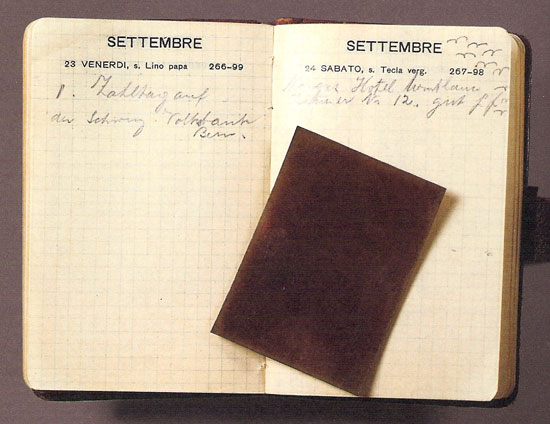 SETTEMBRE
23 VENERDI, s. Lino papa 266-99
1. Zahltag auf
der Schweiz. Volksbank
Bern.
SETTEMBRE
24 SABATO, s. Tecla verg. 267-98
Hotel Montblanc
Nr 12. gut